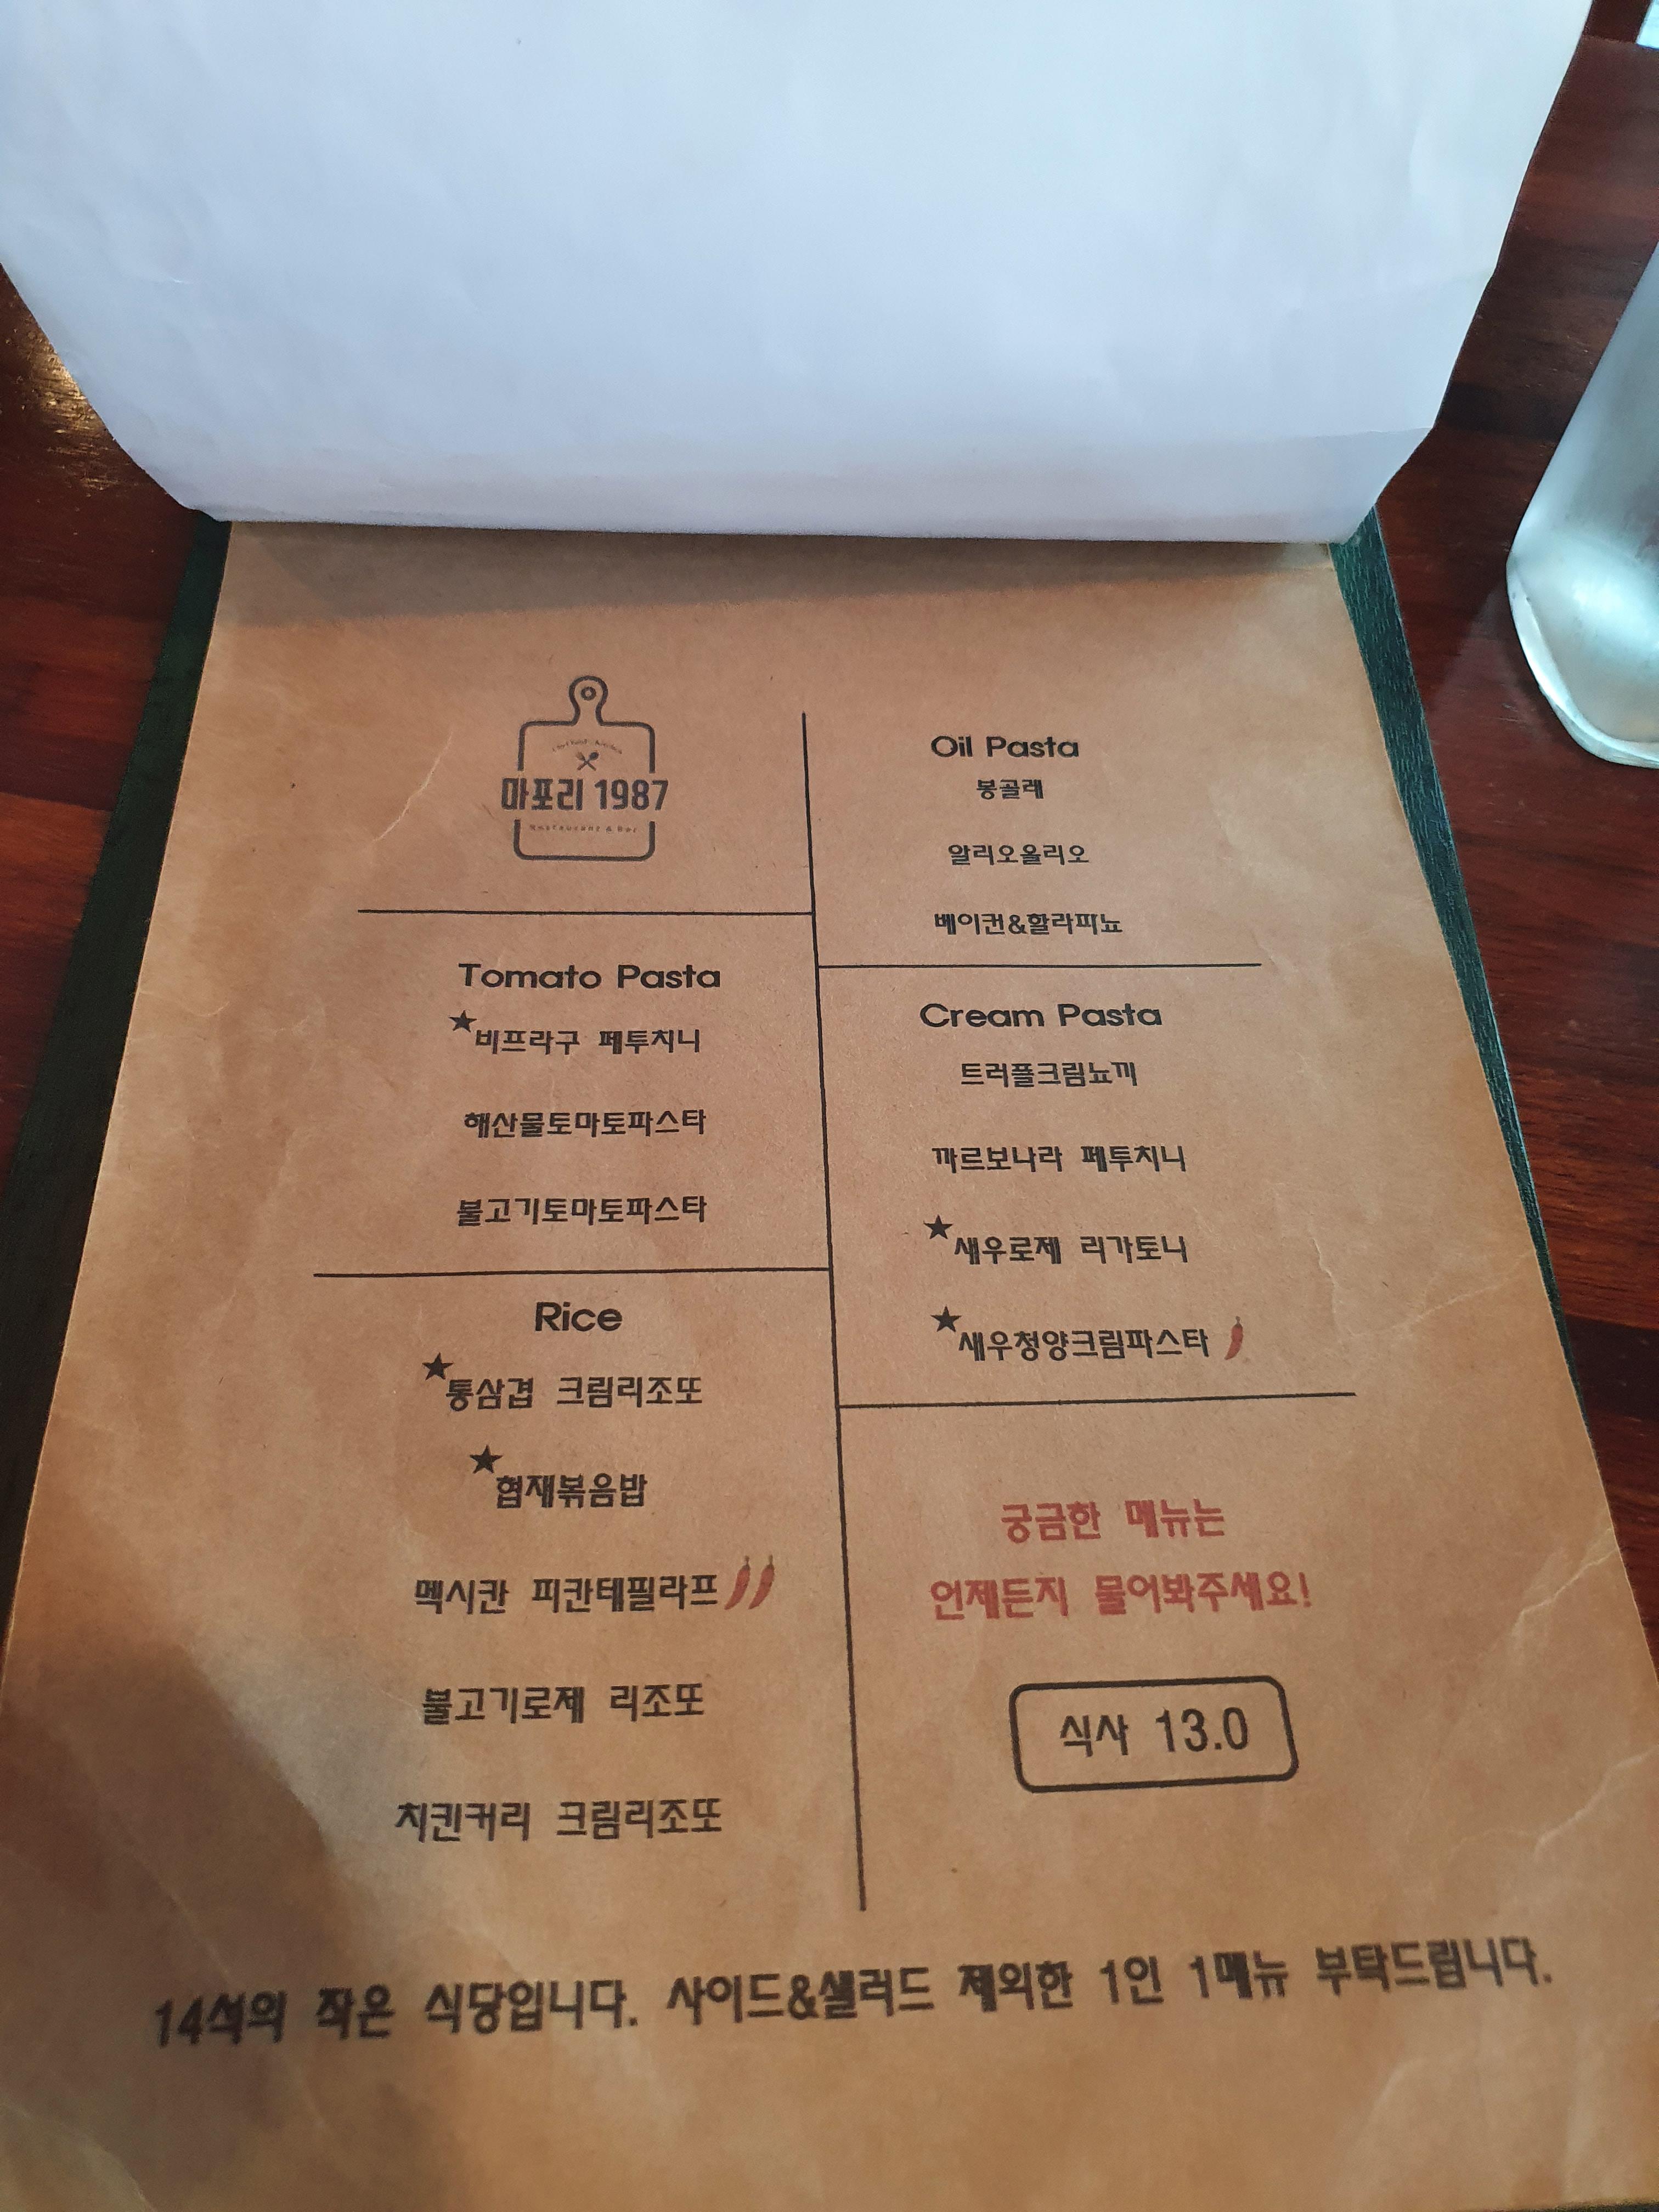 마포리 1987
Restaurant & Bar
Oil Pasta
봉골레
알리오올리오
베이컨&할라피뇨
Tomato Pasta
★비프라구 페투치니
해산물토마토파스타
불고기토마토파스타
Cream Pasta
트러플크림뇨끼
까르보나라 페투치니
★새우로제 리가토니
★새우청양크림파스타
Rice
★통삼겹 크림리조또
★협재볶음밥
멕시칸 피칸테필라프
불고기로제 리조또
치킨커리 크림리조또
궁금한 메뉴는
언제든지 물어봐주세요!
식사 13.0
14석의 작은 식당입니다. 사이드&샐러드 제외한 1인 1메뉴 부탁드립니다.